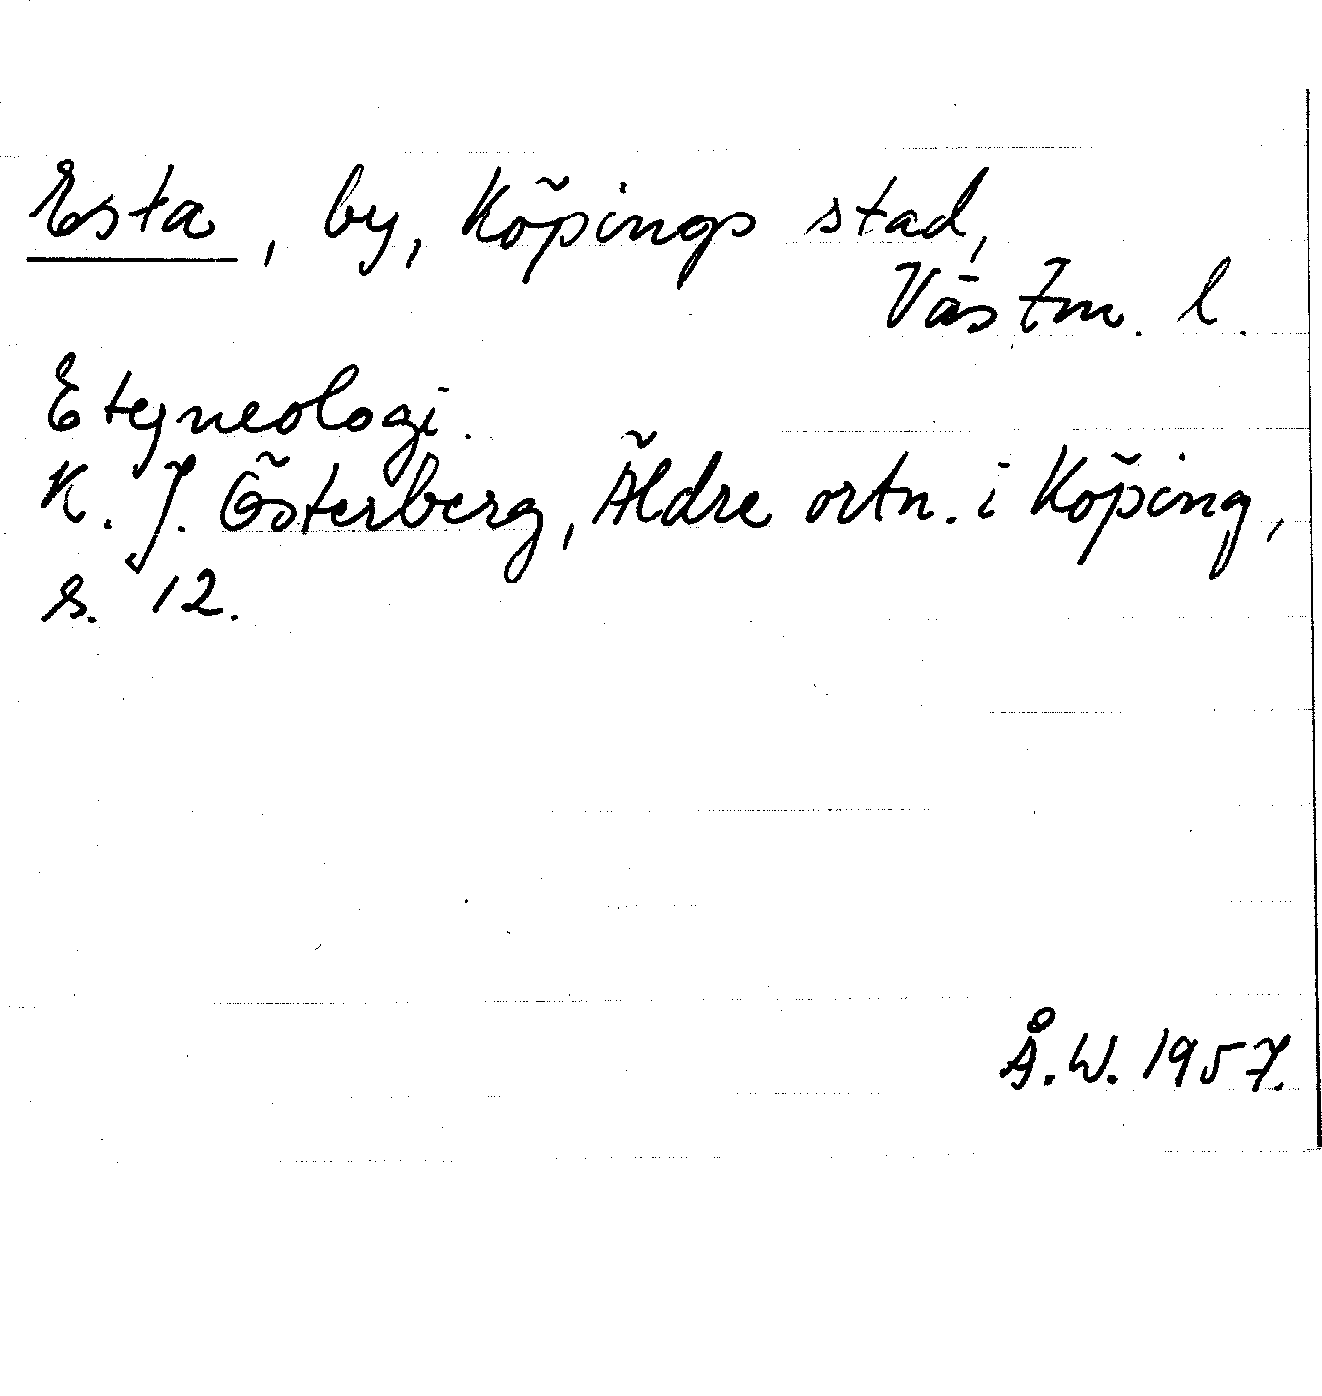 Esta, by, Köpings stad,
Västm. l.
Etymologi.
K. J. Österberg, Äldre ortn. i Köping,
s. 12.
Å. W. 1957.